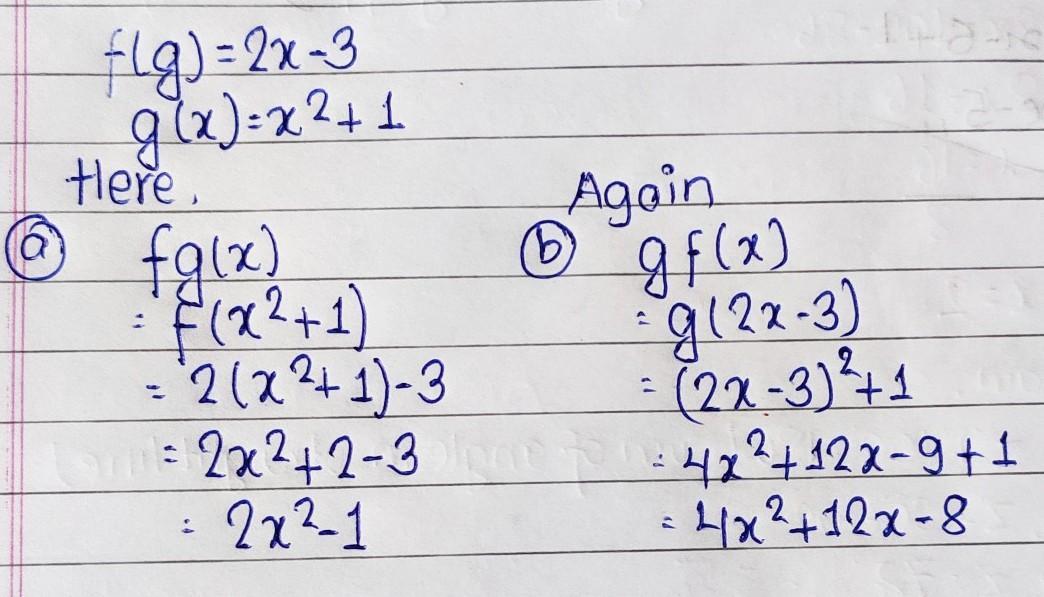 f(g)=2x-3
g(x)=x²+1
Here,
Again
ⓐ fg(x)
= f(x²+1)
= 2(x²+1)-3
= 2x²+2-3
= 2x²-1
ⓑ gf(x)
= g(2x-3)
= (2x-3)²+1
= 4x²+12x-9+1
= 4x²+12x-8